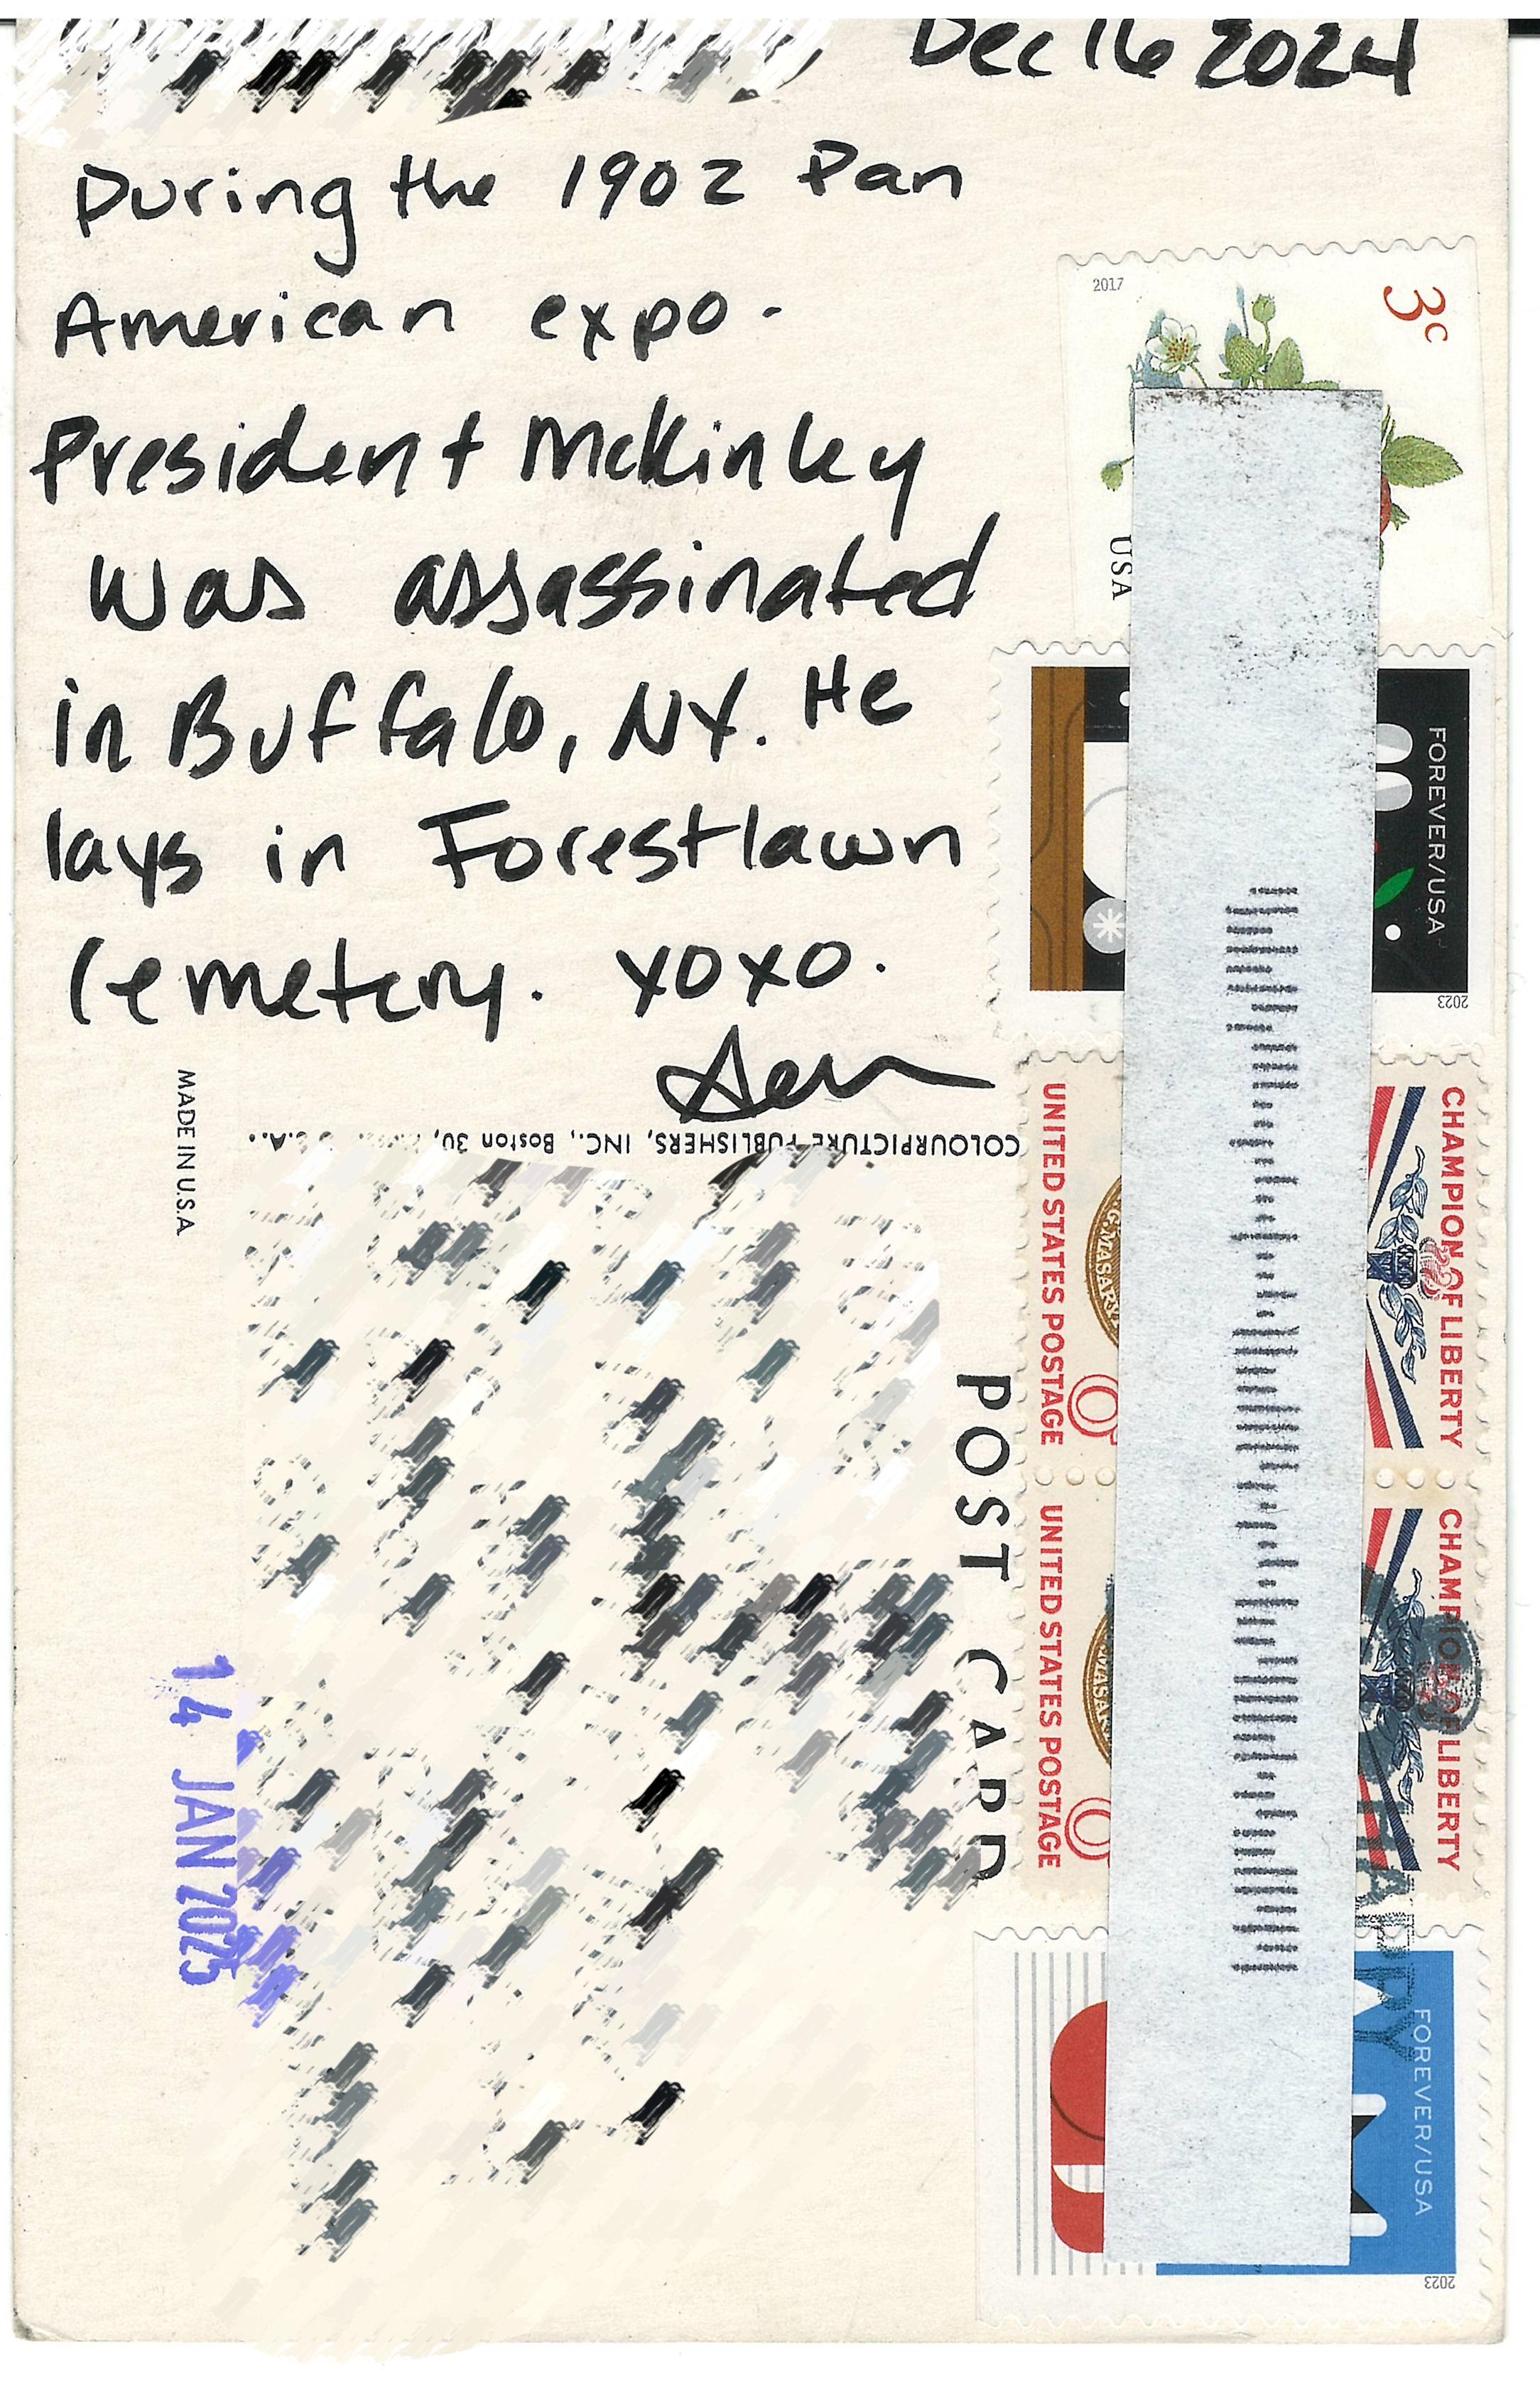 Dec 16 2024
During the 1902 Pan
American expo.
President McKinley
was assassinated
in Buffalo, NY. He
lays in Forestlawn
Cemetery. xoxo.
MADE IN U.S.A
COLOURPICTURE PUBLISHERS, INC., Boston 30,
POST CARD
14 JAN 2025
2017
3c
USA
FOREVER/USA
2023
CHAMPION OF LIBERTY
UNITED STATES POSTAGE
CHAMPION OF LIBERTY
UNITED STATES POSTAGE
FOREVER/USA
2023